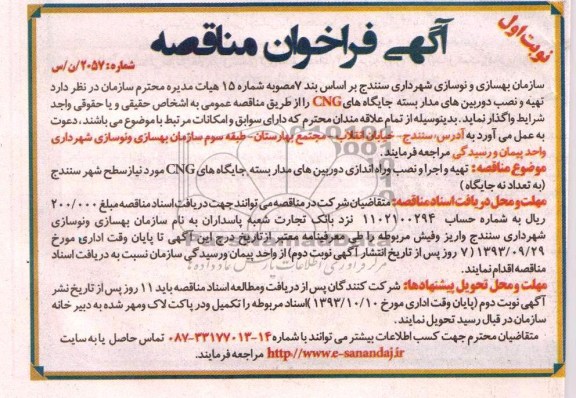 آگهی فراخوان مناقصه
نوبت اول
شماره: ۲۰۵۷/ن/س
سازمان بهسازی و نوسازی شهرداری سنندج بر اساس بند ۷مصوبه شماره ۱۵ هیات مدیره محترم سازمان در نظر دارد
تهیه و نصب دوربین های مدار بسته جایگاه های CNG را از طریق مناقصه عمومی به اشخاص حقیقی و یا حقوقی واجد
شرایط واگذار نماید. بدینوسیله از تمام علاقه مندان محترم که دارای سوابق و امکانات مرتبط با موضوع می باشند، دعوت
به عمل می آورد به آدرس، سنندج- خیابان انقلاب- مجتمع بهارستان- طبقه سوم سازمان بهسازی ونوسازی شهرداری
واحد پیمان و رسیدگی مراجعه فرمایند.
موضوع مناقصه: تهیه و اجرا و نصب وراه اندازی دوربین های مدار بسته جایگاه های CNG مورد نیاز سطح شهر سنندج
(به تعداد نه جایگاه)
مهلت و محل دریافت اسناد مناقصه: متقاضیان شرکت در مناقصه می توانند جهت دریافت اسناد مناقصه مبلغ ۲۰۰/۰۰۰
ریال به شماره حساب ۱۱۰۲۱۰۰۲۹۴ نزد بانک تجارت شعبه پاسداران به نام سازمان بهسازی ونوسازی
شهرداری سنندج واریز وفیش مربوطه را طی معرفینامه معتبر از تاریخ درج این آگهی تا پایان وقت اداری مورخ
۱۳۹۳/۰۹/۲۹ (۷ روز پس از تاریخ انتشار آگهی نوبت دوم) از واحد پیمان ورسیدگی سازمان نسبت به دریافت اسناد
مناقصه اقدام نمایند.
مهلت و محل تحویل پیشنهادها: شرکت کنندگان پس از دریافت ومطالعه اسناد مناقصه باید ۱۱ روز پس از تاریخ نشر
آگهی نوبت دوم (پایان وقت اداری مورخ ۱۳۹۳/۱۰/۱۰) اسناد مربوطه را تکمیل ودر پاکت لاک ومهر شده به دبیر خانه
سازمان در قبال رسید تحویل نمایند.
متقاضیان محترم جهت کسب اطلاعات بیشتر می توانند با شماره ۱۴-۳۳۱۷۷۰۱۳-۰۸۷ تماس حاصل یا به سایت
http://www.e-sanandaj.ir مراجعه فرمایند.